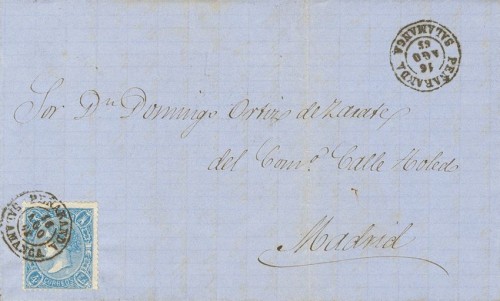 PEÑARANDA
16
AGO
65
SALAMANCA
Sor. Dn. Domingo Ortiz de Zarate
del Comº. Calle Toledo
Madrid
PEÑARANDA
16
AGO
SALAMANCA
CORREOS